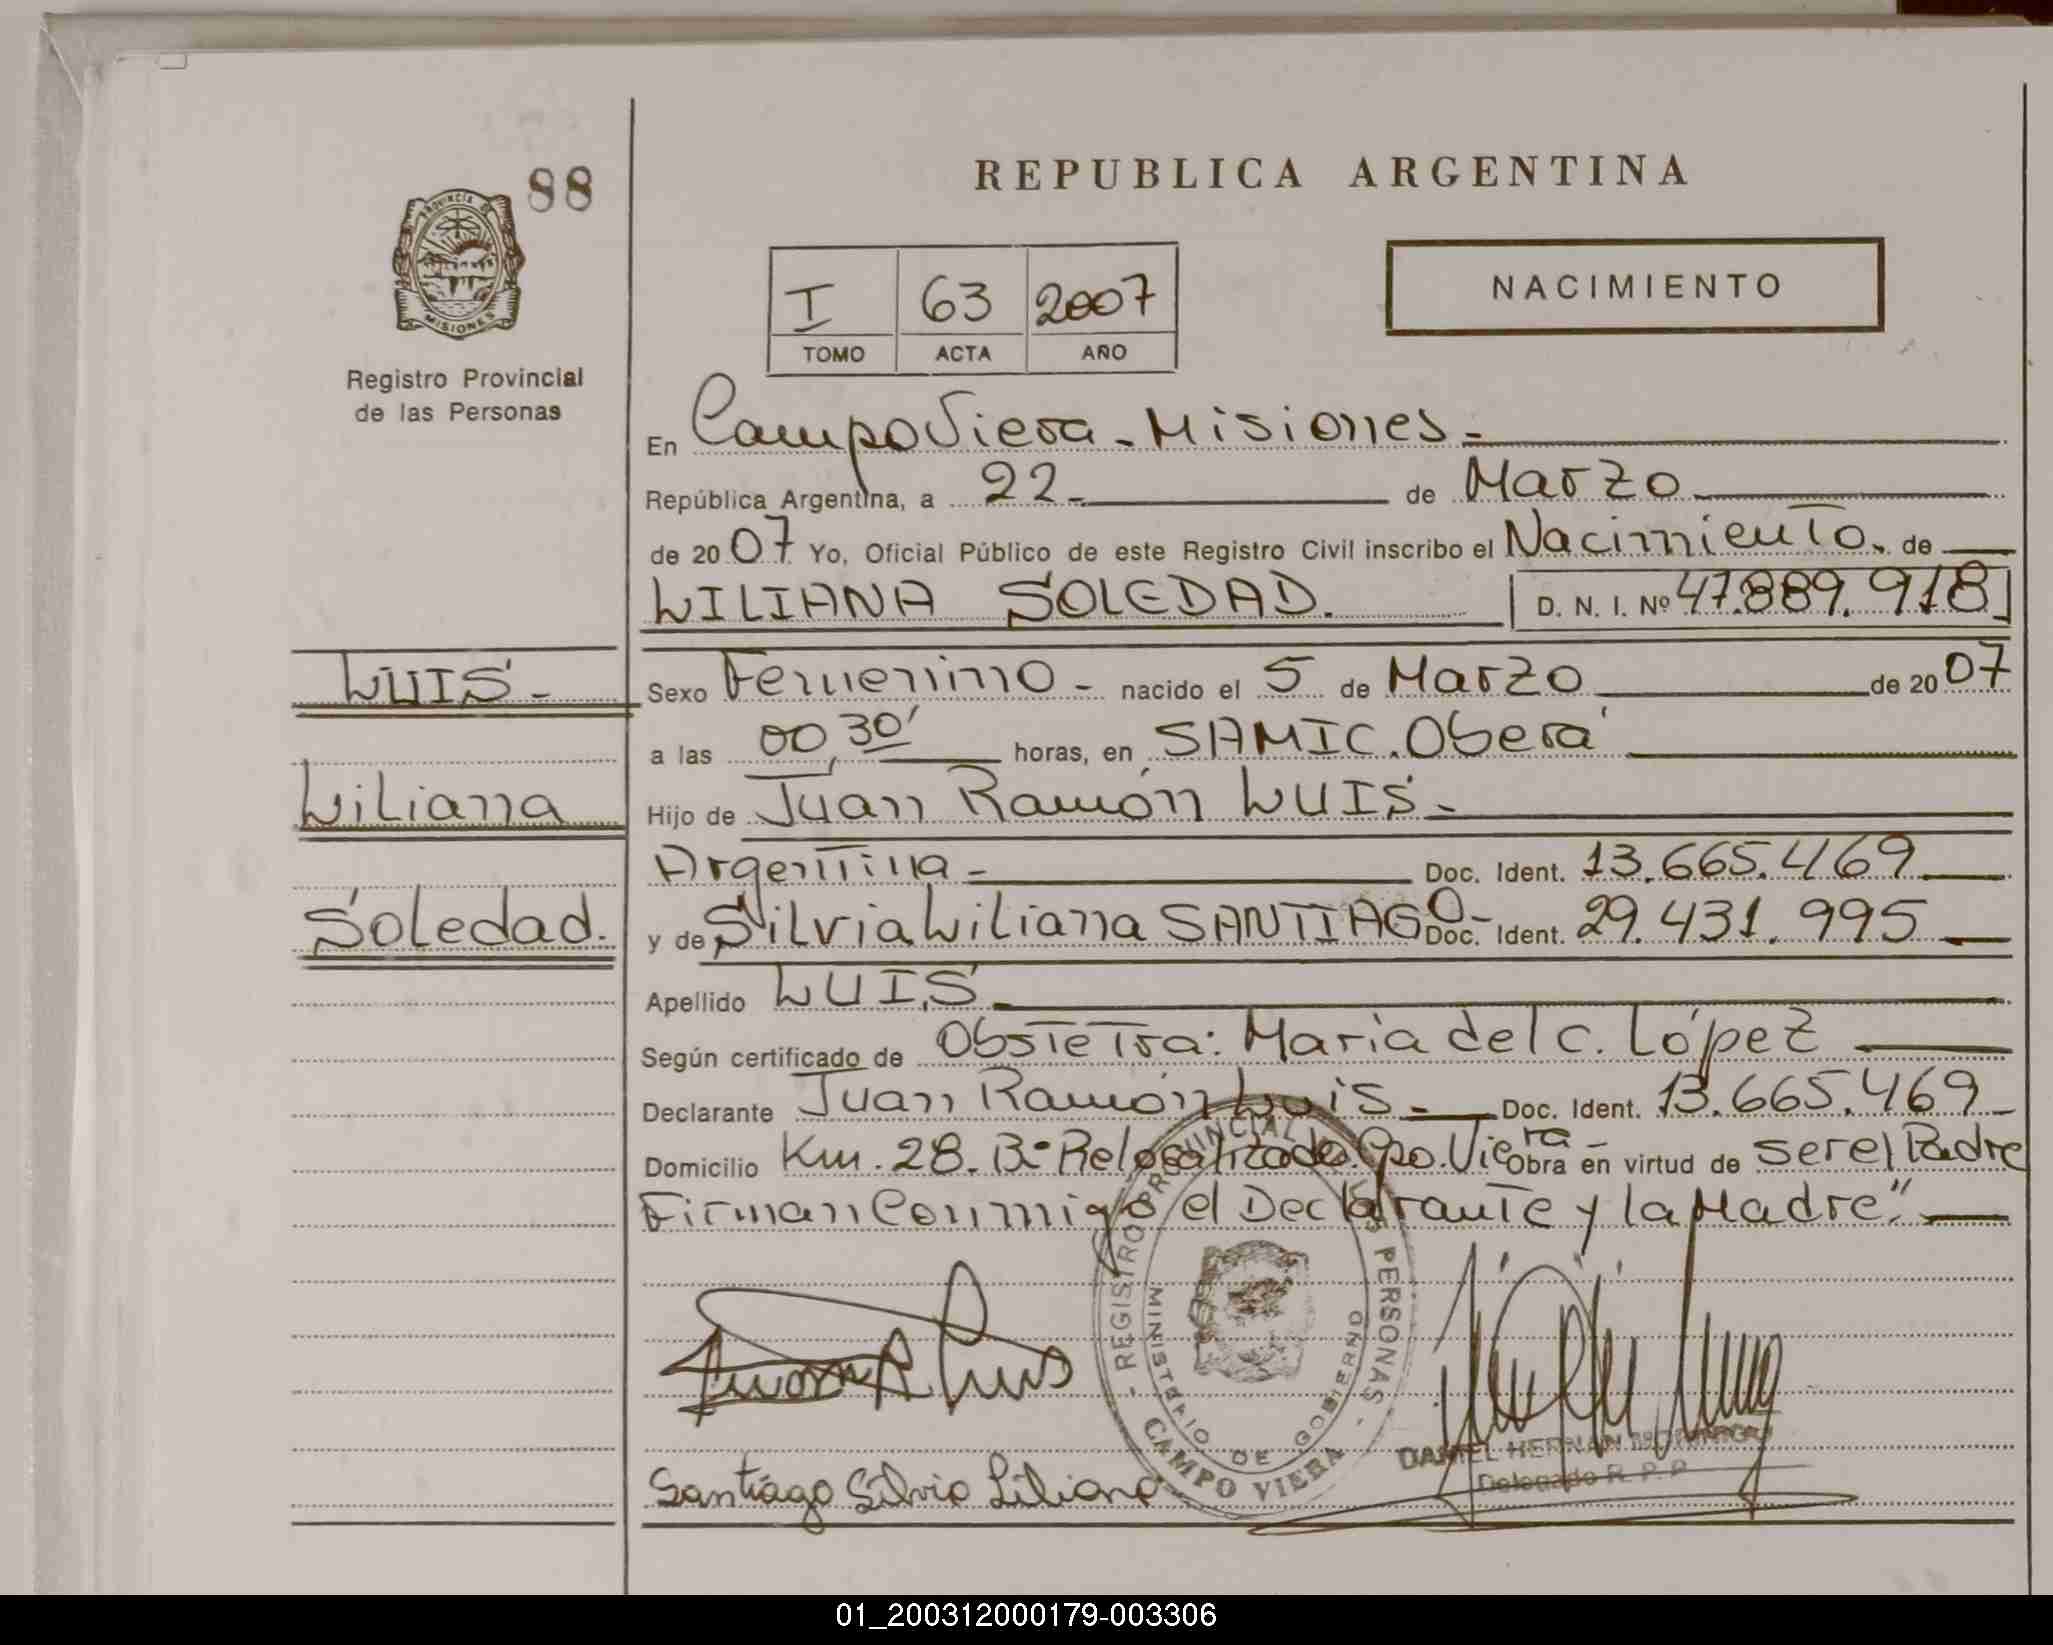 88
PROVINCIA DE
MISIONES
Registro Provincial
de las Personas
REPUBLICA ARGENTINA
I 63 2007
TOMO ACTA AÑO
NACIMIENTO
En Campo Viera - Misiones -
República Argentina, a 22 - de Marzo
de 2007 Yo, Oficial Público de este Registro Civil inscribo el Nacimiento. de
LILIANA SOLEDAD. D. N. I. Nº 47.889.918
LUIS -
Liliana
Soledad.
Sexo Femenino - nacido el 5 de Marzo de 2007
a las 00,30' horas, en SAMIC. Oberá
Hijo de Juan Ramón LUIS -
Argentina - Doc. Ident. 13.665.469
y de Silvia Liliana SANTIAGO - Doc. Ident. 29.431.995
Apellido LUIS
Según certificado de Obstetra: María del C. López
Declarante Juan Ramón Luis - Doc. Ident. 13.665.469
Domicilio Km. 28. Bº Relocalizado. Cpo. Viera - Obra en virtud de ser el Padre
Firman Conmigo el Declarante y la Madre"
Juan R Luis
Santiago Silvia Liliana
- REGISTRO PROVINCIAL DE LAS PERSONAS -
MINISTERIO DE GOBIERNO
CAMPO VIERA
DANIEL HERNAN
Delegado R. P. P
01_200312000179-003306